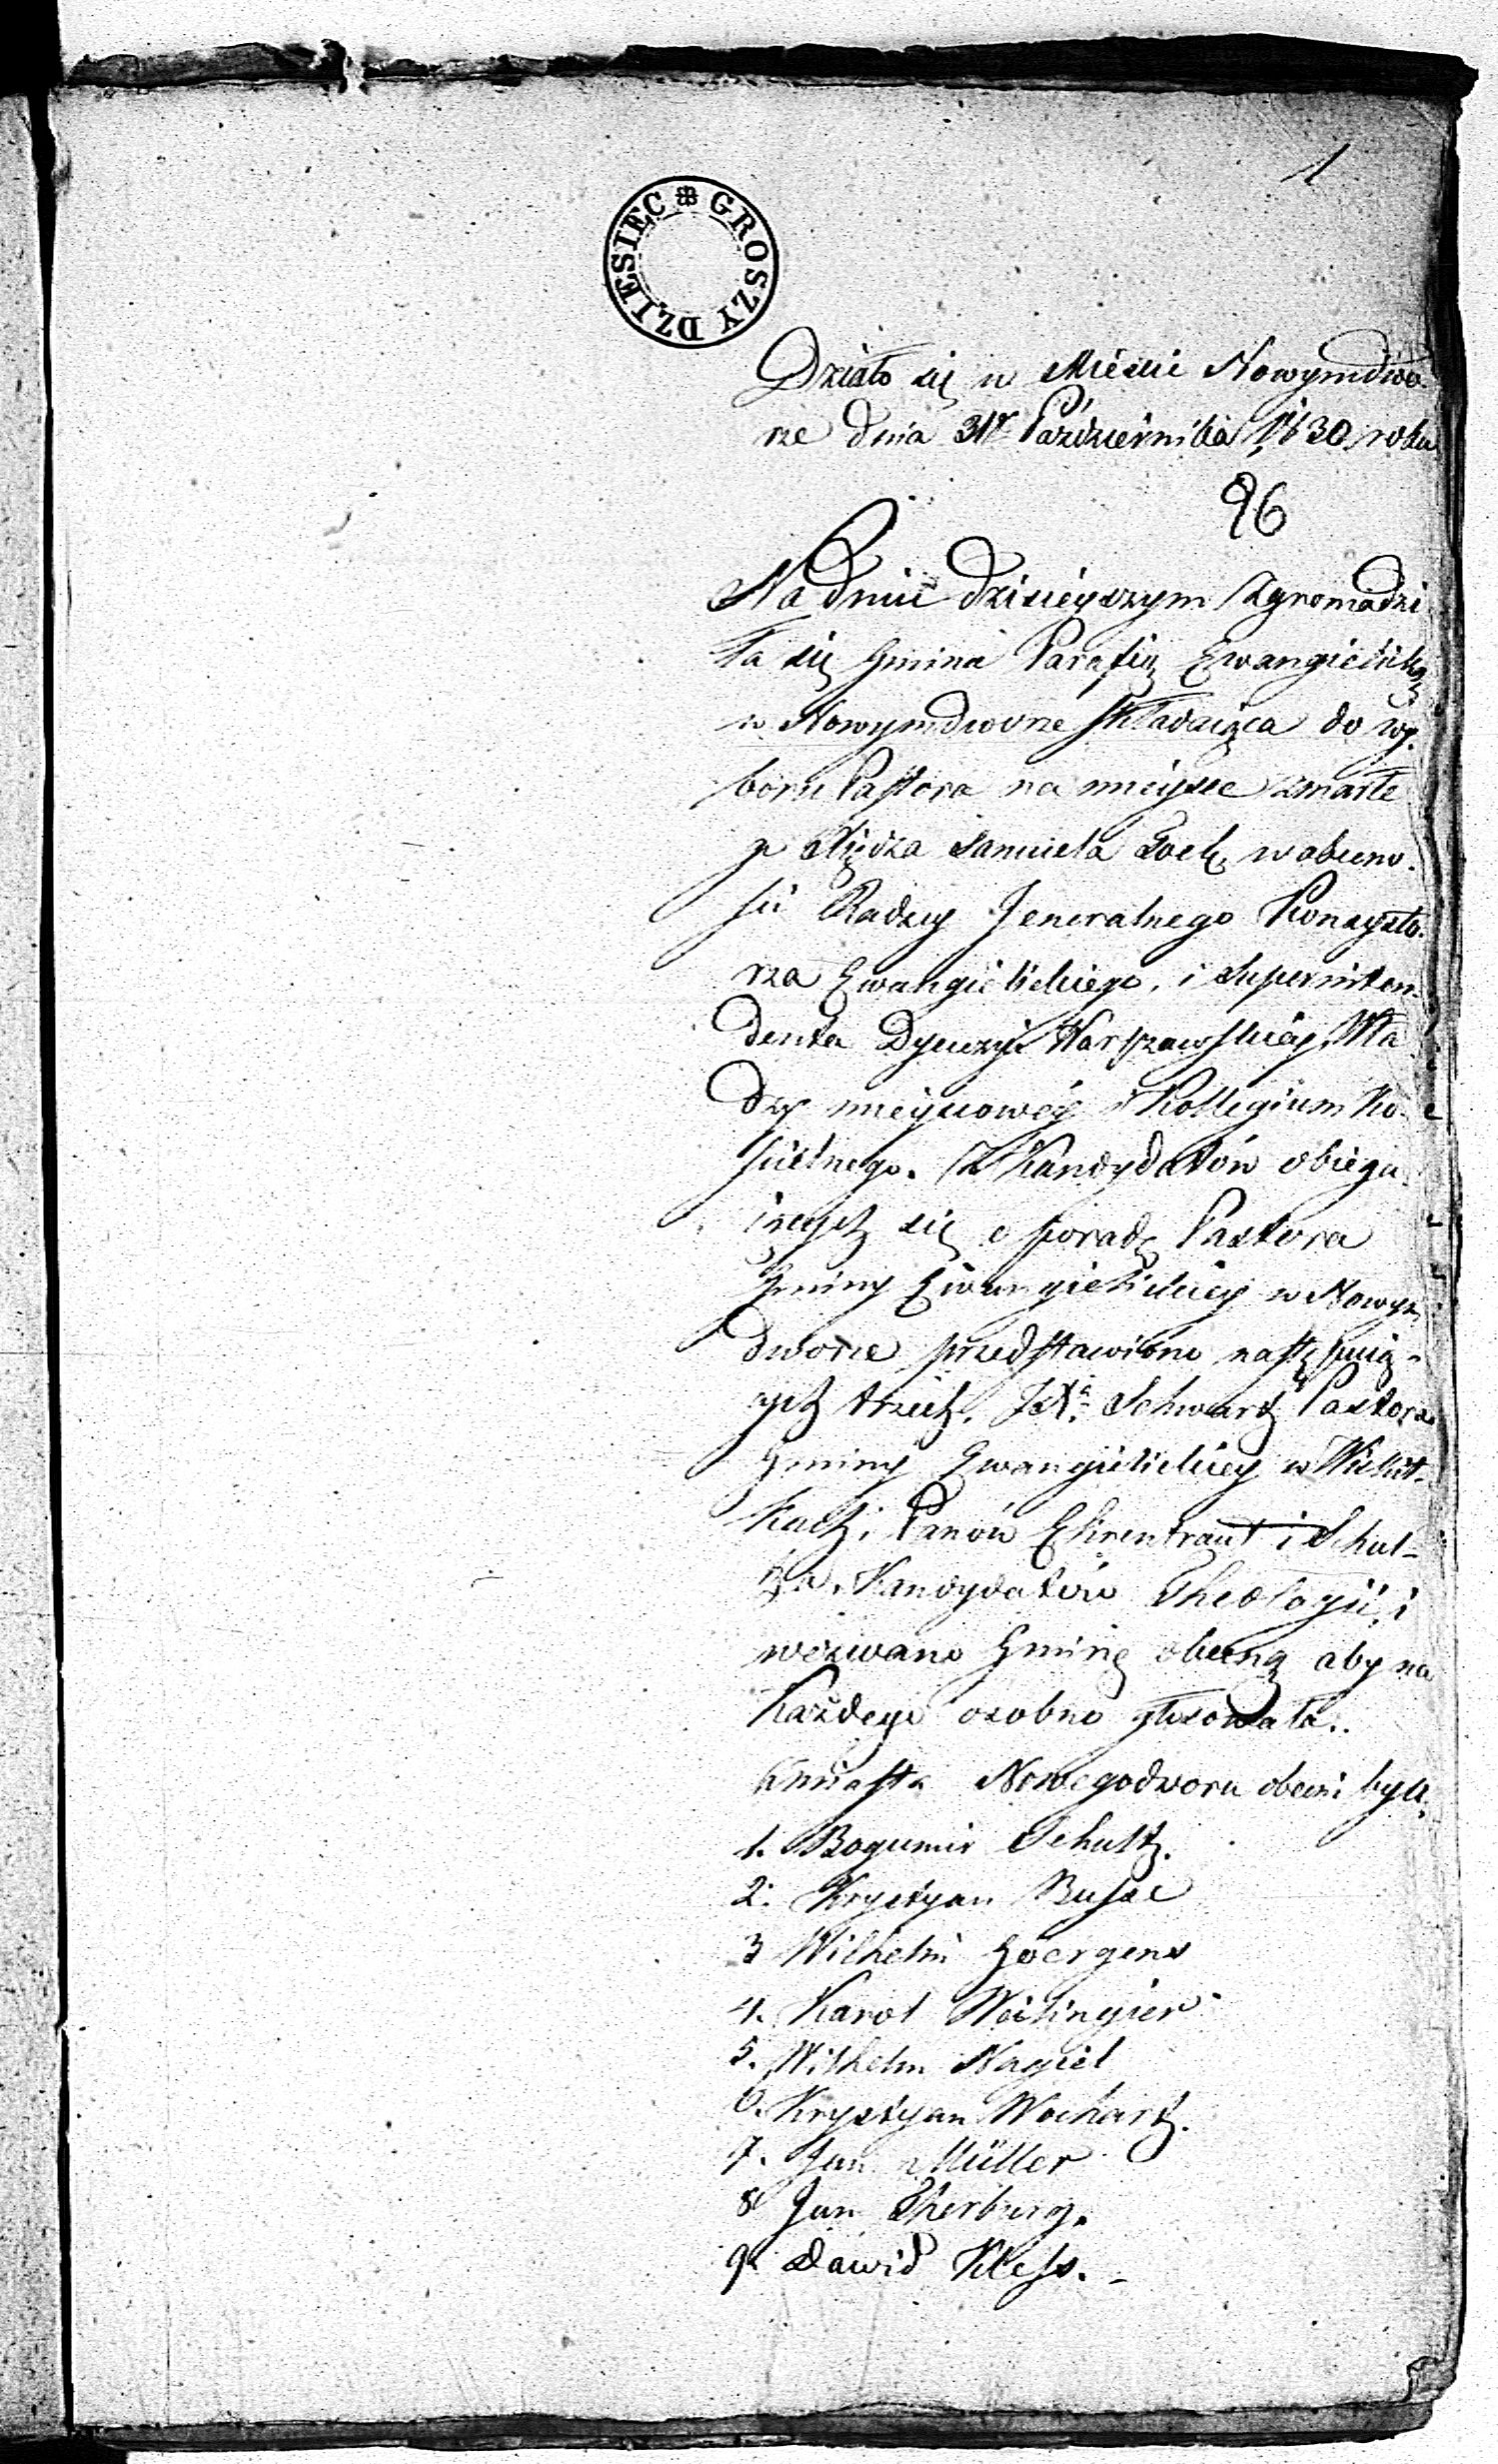 1
GROSZY DZIESIĘC
Działo się w Mieście Nowymdwo-
rze dnia 31º Października 1830 roku
96
Na dniu dzisieyszym zgromadzi
ła się Gmina Parafię Ewangielicką
w Nowymdworze składaiąca do wy-
boru Pastora na mieysce zmarłe
go Xiędza Samuela w obecno-
ści Radzcy Jeneralnego Konsysto-
rza Ewangielickiego, i Superinten-
denta Dyecezyi Warszawskiey, Wła
dzy mieyscowéy i Kollegium Ko-
ścielnego. Z Kandydatów obiega
iących się o posadę Pastora
Gminy Ewangielickiey w Nowym
dworze przedstawiono następuią-
cych trzech, JXa Schwartz Pastora
Gminy Ewangielickiey w Wiskit-
kach, Panów Ehrentraut i Schul-
tza, Kandydatów Theologii, i
wezwano Gminę obecną aby na
każdego osobno głosowała..
z miasta Nowegodworu obecni byli,
1. Bogumir Schultz.
2. Krystyan Busse
3 Wilhelm Goergens
4. Karol
5. Wilhelm Nagiel
6. Krystyan Wochartz.
7. Jan Müller
8 Jan Therburg.
9. Dawid Kless.-